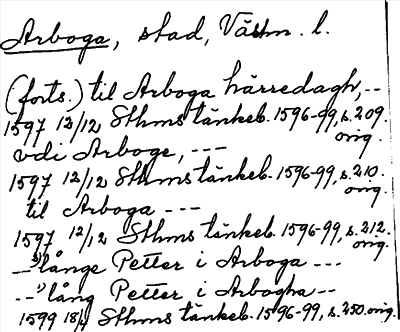 Arboga, stad, Västm. l.
(forts.) til Arboga härredagh, --
1597 12/12 Sthms tänkeb. 1596-99, s. 209.
orig.
vdi Arboge, ---
1597 12/12 Sthms tänkeb. 1596-99, s. 210.
orig.
til Arboga ---
1597 12/12 Sthms tänkeb. 1596-99, s. 212.
orig.
--"långe Petter i Arboga ---
--"lång Petter i Arbogha --
1599 18/4 Sthms tänkeb. 1596-99, s. 250. orig.